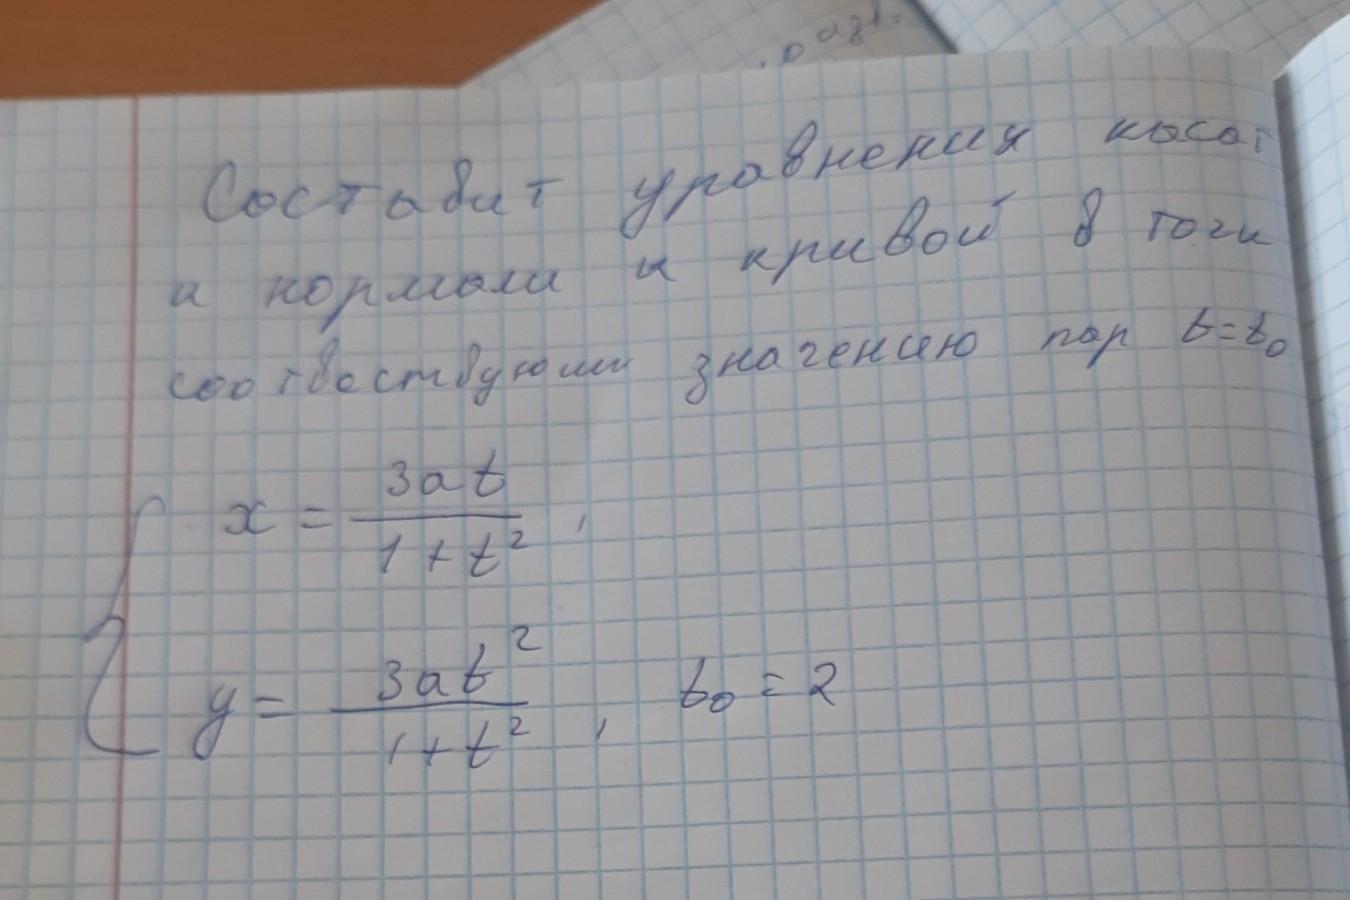 Составит уравнения касат
и нормали к кривой в точи
соответствующи значению пар t=t₀
x = 3at / 1+t² ,
y = 3at² / 1+t² , t₀ = 2